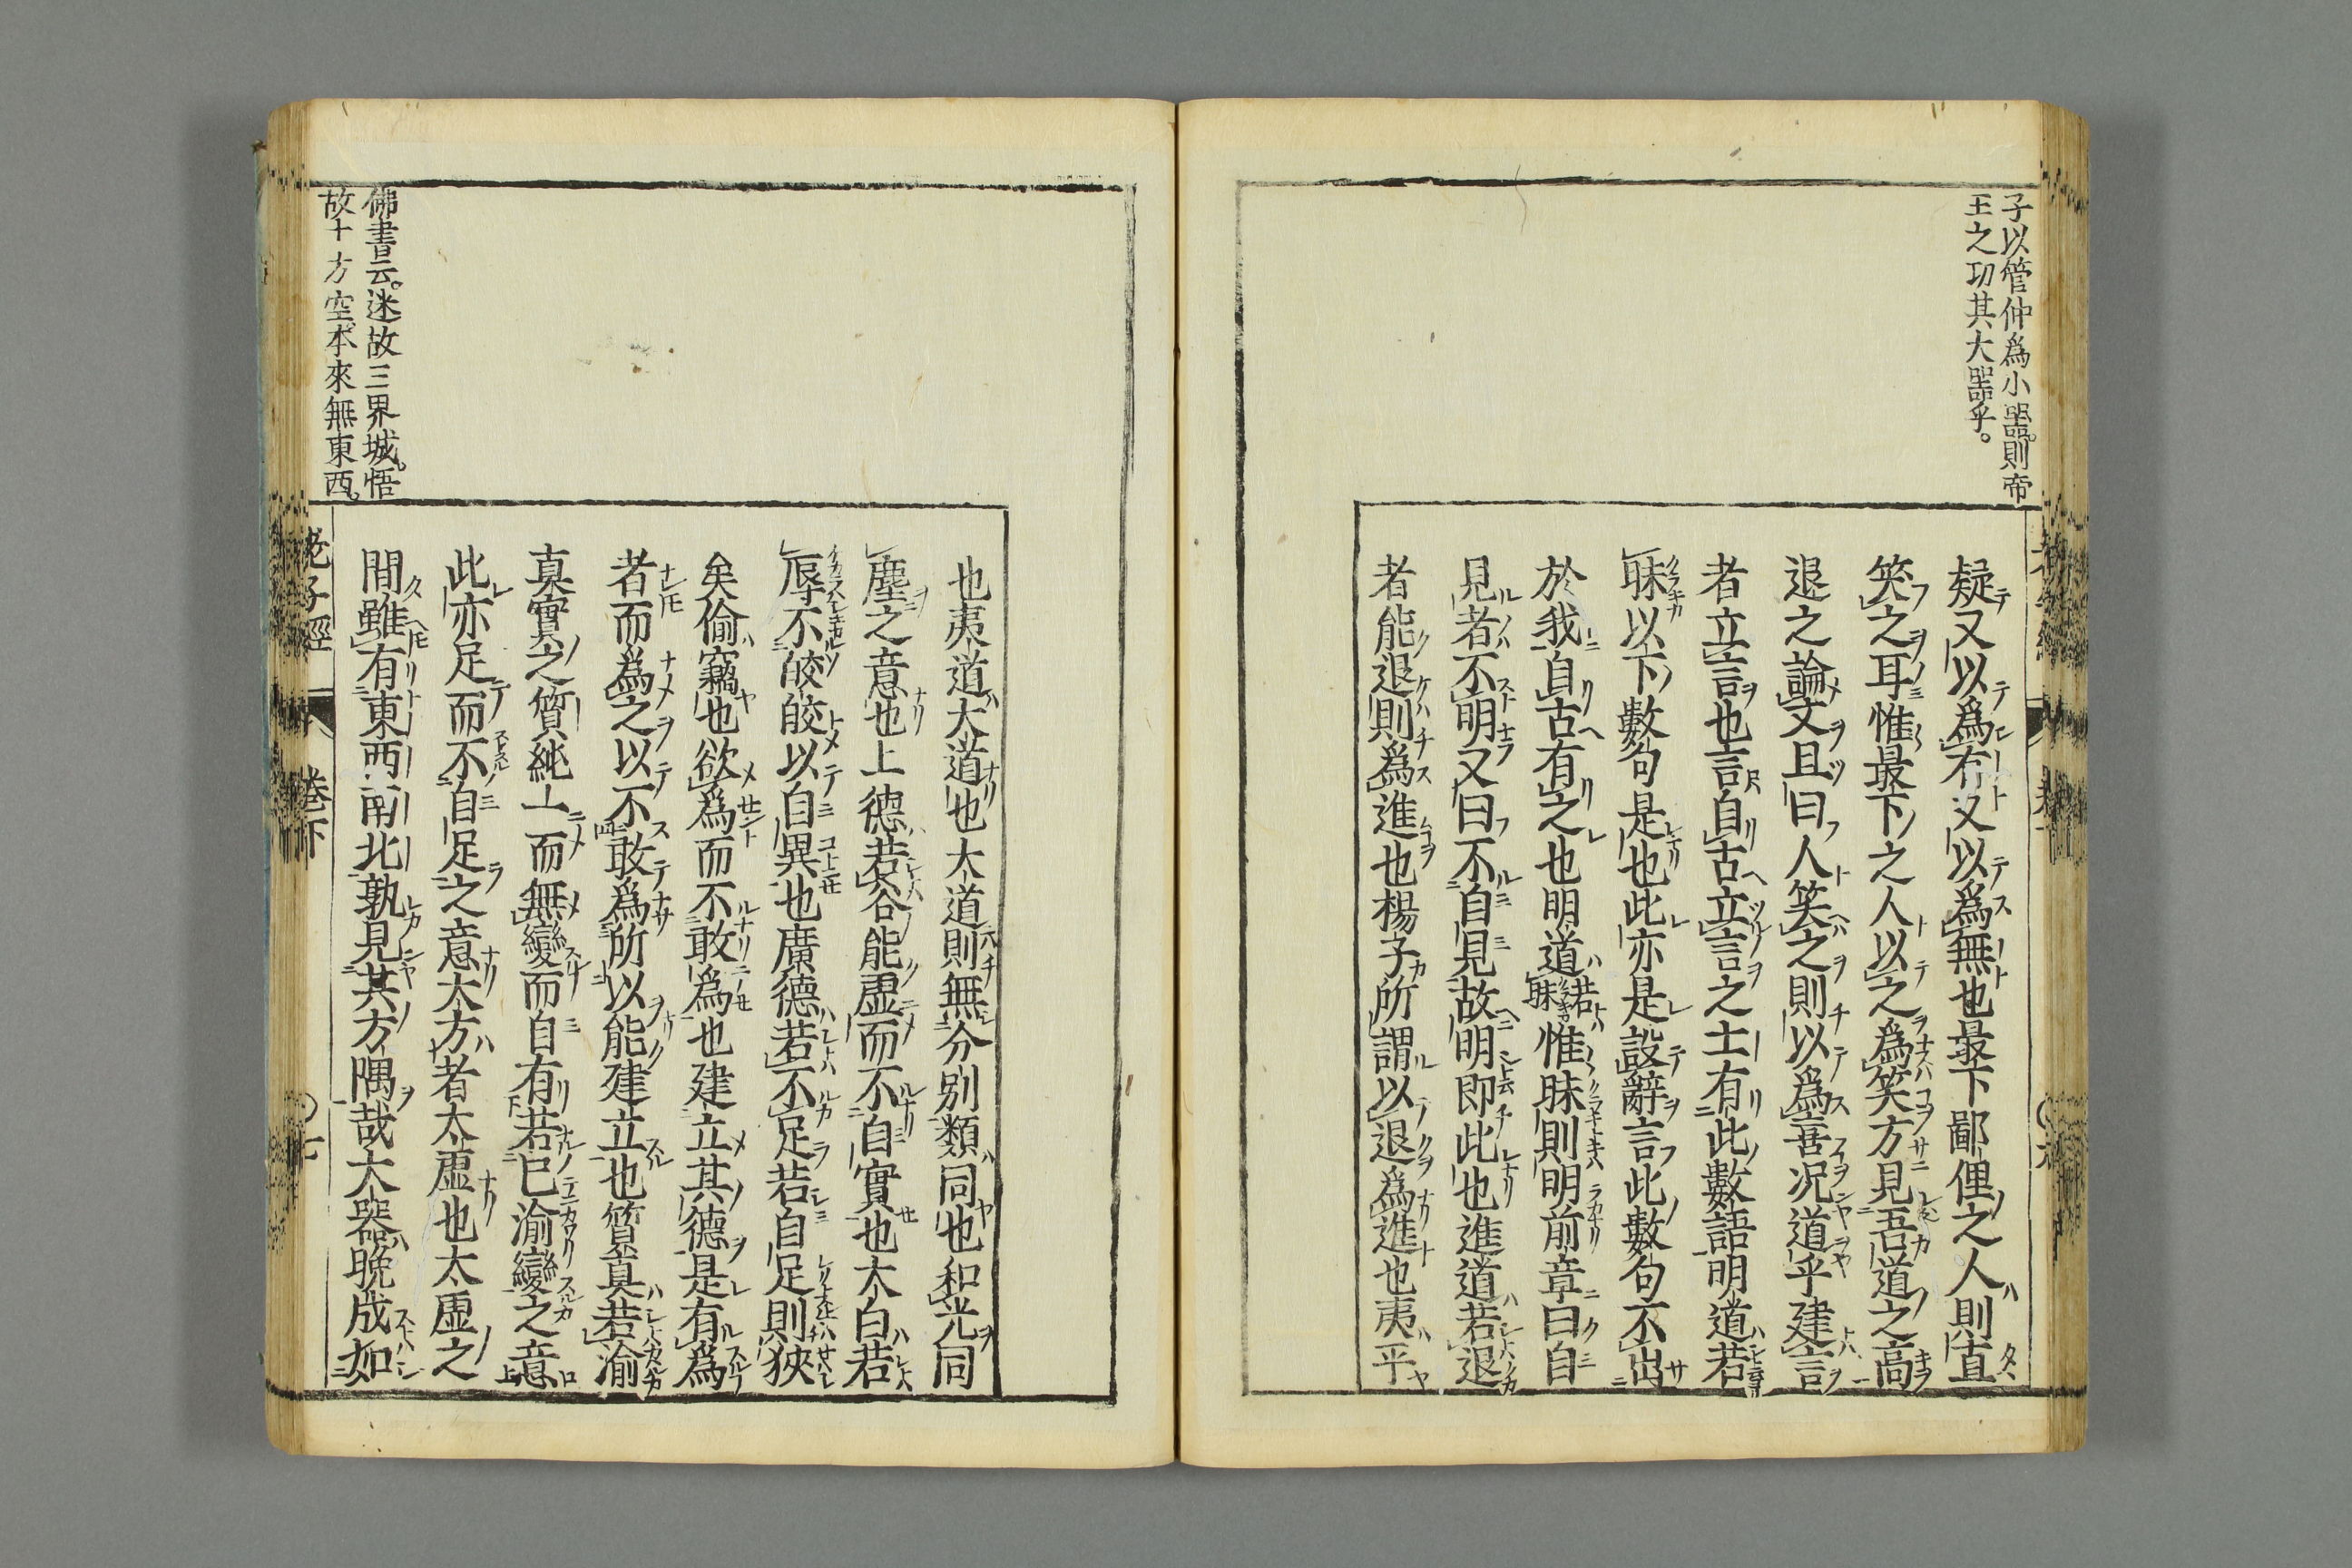 子以管仲爲小器。則帝
王之功其大器乎。
疑又以爲有又以爲無也最下鄙俚之人則直
笑之耳惟最下之人以之爲笑方見吾道之高
退之論文且曰人笑之則以爲喜況道乎建言
者立言也言自古立言之士有此數語明道若
昧以下數句是也此亦是設辭言此數句不出
於我自古有之也明道若昧惟昧則明前章曰自
見者不明又曰不自見故明即此也進道若退
者能退則爲進也楊子所謂以退爲進也夷平
也夷道大道也大道則無分別類同也和光同
塵之意也上德若谷能虛而不自實也太白若
辱不皎皎以自異也廣德若不足若自足則狹
矣偷竊也欲爲而不敢爲也建立其德是有爲
者而爲之以不敢爲所以能建立也質真若渝
真實之質純一而無變而自有若已渝變之意
此亦足而不自足之意太方者太虛也太虛之
間雖有東西南北孰見其方隅哉大器晚成如
佛書云。迷故三界城。悟
故十方空。本來無東西。
老子經 卷下